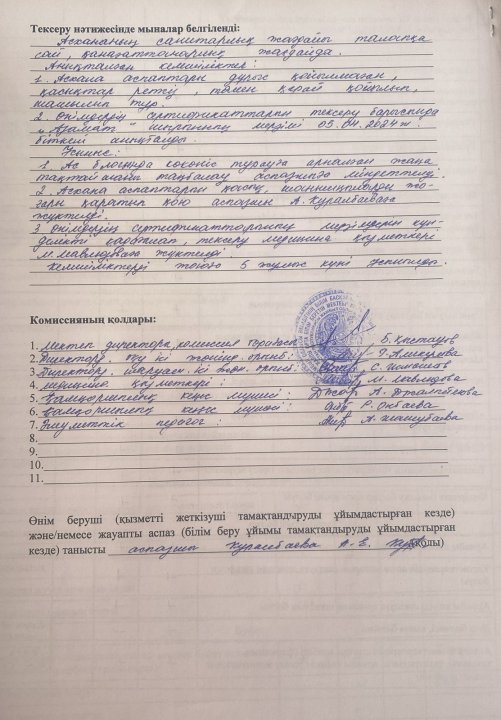 Тексеру нәтижесінде мыналар белгіленді:
Асхананың санитарлық жағдайы талапқа
сай, қанағаттанарлық жағдайда.
Анықталған кемшіліктер:
1. Асхана аспаптары дұрыс қойылмаған,
қасықтар ретсіз, төмен қарай
тұр.
2. Өнімдердің сертификаттарын тексеру барысында
"Азамат" мерзімі 05.04.2024 ж.
біткені анықталды.
Ұсыныс:
1. Ас блогында көкөніс турауға арналған жаңа
тақтайшаны таңбалау аспазшыға міндеттелді
2. Асхана аспаптарын қасық, шанышқыларды жо-
ғары қаратып қою аспазшы А.Куралбаеваға
жүктелді.
3. Өнімдердің сертификаттарының мерзімдерін күн-
делікті қадағалап, тексеру медицина қызметкері
М. жүктелді
Кемшіліктерді жоюға 5 жұмыс күні
Комиссияның қолдары:
1. Мектеп директоры, комиссия төрағасы Б.
2. Директордың оқу ісі жөнінд. орынб:
3. Директордың шаруаш. ісі жөн. орынб: С.
4. Медицина қызметкері: М.
5. Қамқоршылық кеңес мүшесі: А.
6. Қамқоршылық кеңес мүшесі: Р. Окбаева
7. Әлеуметтік педагог: А.
8.
9.
10.
11.
Өнім беруші (қызметті жеткізуші тамақтандыруды ұйымдастырған кезде)
және/немесе жауапты аспаз (білім беру ұйымы тамақтандыруды ұйымдастырған
кезде) танысты аспазшы Куралбаева А.Е. (қолы)